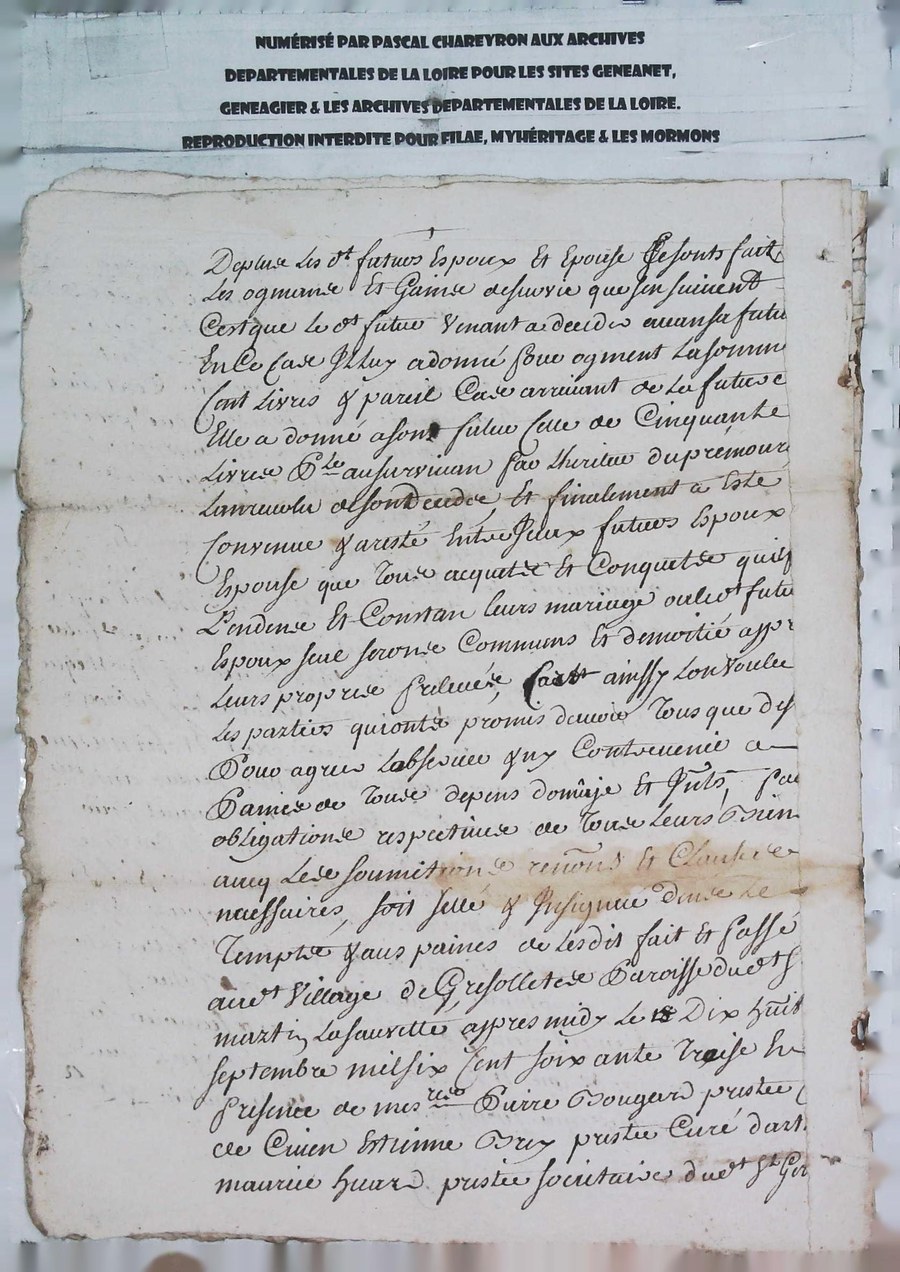 NUMÉRISÉ PAR PASCAL CHAREYRON AUX ARCHIVES
DEPARTEMENTALES DE LA LOIRE POUR LES SITES GENEANET,
GENEAGIER & LES ARCHIVES DEPARTEMENTALES DE LA LOIRE.
REPRODUCTION INTERDITE POUR FILAE, MYHÉRITAGE & LES MORMONS
Deplus Les dt futurs Espoux Et Epouse se sonts fait
Les ogmans Et Gains desurvie que sen suivent
Cest que Le dt futur Venant a deceder avan sa futu
En Ce Cas Il Luy a donné pour ogment La somm
Cent Livres & pareil Cas arrivant de La future
Elle a donné a son futur Celle de Cinquante
Livres au survivan par Lheritier du premour
Lan revolu de son deces, Et finalement a Esté
Convenu & aresté Entre Iceux futurs Espoux
Espouse que Tous acquets Et Conquets quil
Pendens Et Constan Leurs mariage ou led futu
Espoux seul serons Communs Et demoitié appr
Leurs propries prelevés, fait ainssy Lon Voulu
Les parties quionts promis davoir Tous que des
Pour agreer Lobserver & ny Contrevenir a
Paines de Tous depens domaje Et Ints, par
obligations respetives de Tous Leurs Bien
avecq Les soumitions renons Et Clauses
necessaires, soit sellé & Insignué dans Le
Temps & aus paines de Lesdit fait Et passé
audt Village de Gresolletes Paroisse dudt St
martin Lasauvetté appres midy Le Dix huit
septembre mil six Cent soix ante Traise En
presence de mesres Pierre Bougard prestre
de Cuien Estienne Brey prestre Curé dart
maurice huard prestre socritaire dudt St Ger